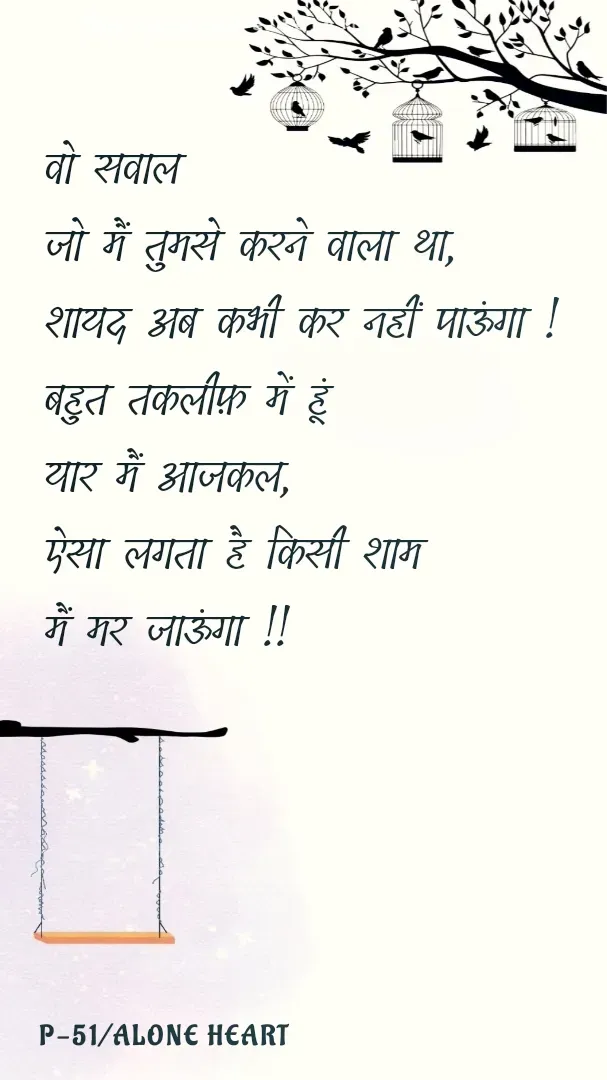 वो सवाल
जो मैं तुमसे करने वाला था,
शायद अब कभी कर नहीं पाऊंगा !
बहुत तकलीफ़ में हूं
यार मैं आजकल,
ऐसा लगता है किसी शाम
मैं मर जाऊंगा !!
P-51/ALONE HEART